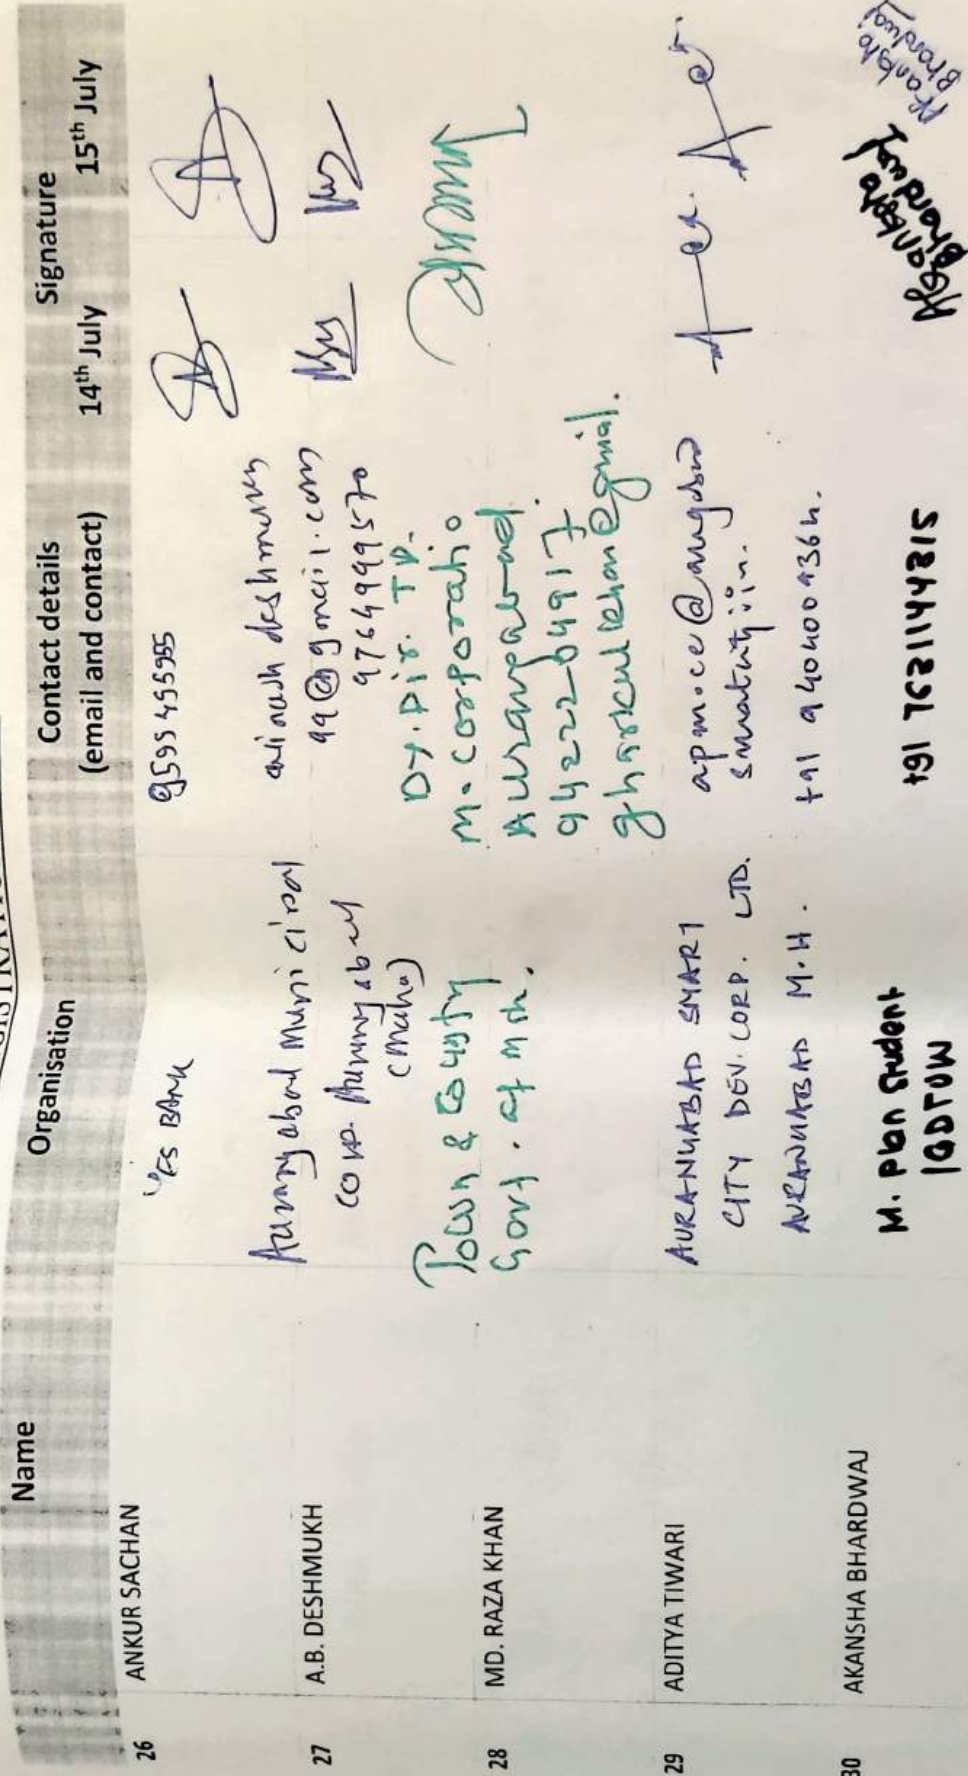 Name
Organisation
Contact details
(email and contact)
Signature
14th July
15th July
26
ANKUR SACHAN
YES BANK
9595455955
27
A.B. DESHMUKH
Aurangabad Municipal
corp. Aurangabad
(maha)
avinash deshmukh
99@gmail.com
9764999570
28
MD. RAZA KHAN
Town & County
Govt. of MH.
Dy. Dir. TP.
M. Corporatio
Aurangabad.
9422204917
gharkulkhan@gmial.
29
ADITYA TIWARI
AURANGABAD SMART
CITY DEV. CORP. LTD.
AURANGABAD M.H.
+91
30
AKANSHA BHARDWAJ
M. Plan Student
IGDTUW
+91 7631144315
Akansha
Bhardwaj
Akansha
Bhardwaj